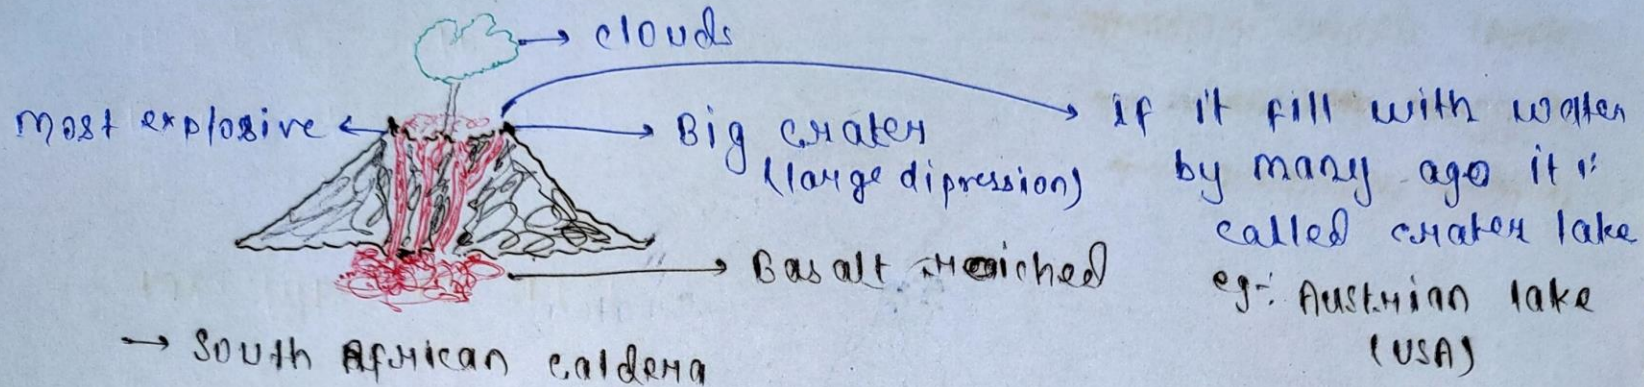 clouds
most explosive
Big crater
(large dipression)
if it fill with water
by many ago it is
called crater lake
eg:- Austrian lake
(USA)
Basalt riched
→ South African caldera